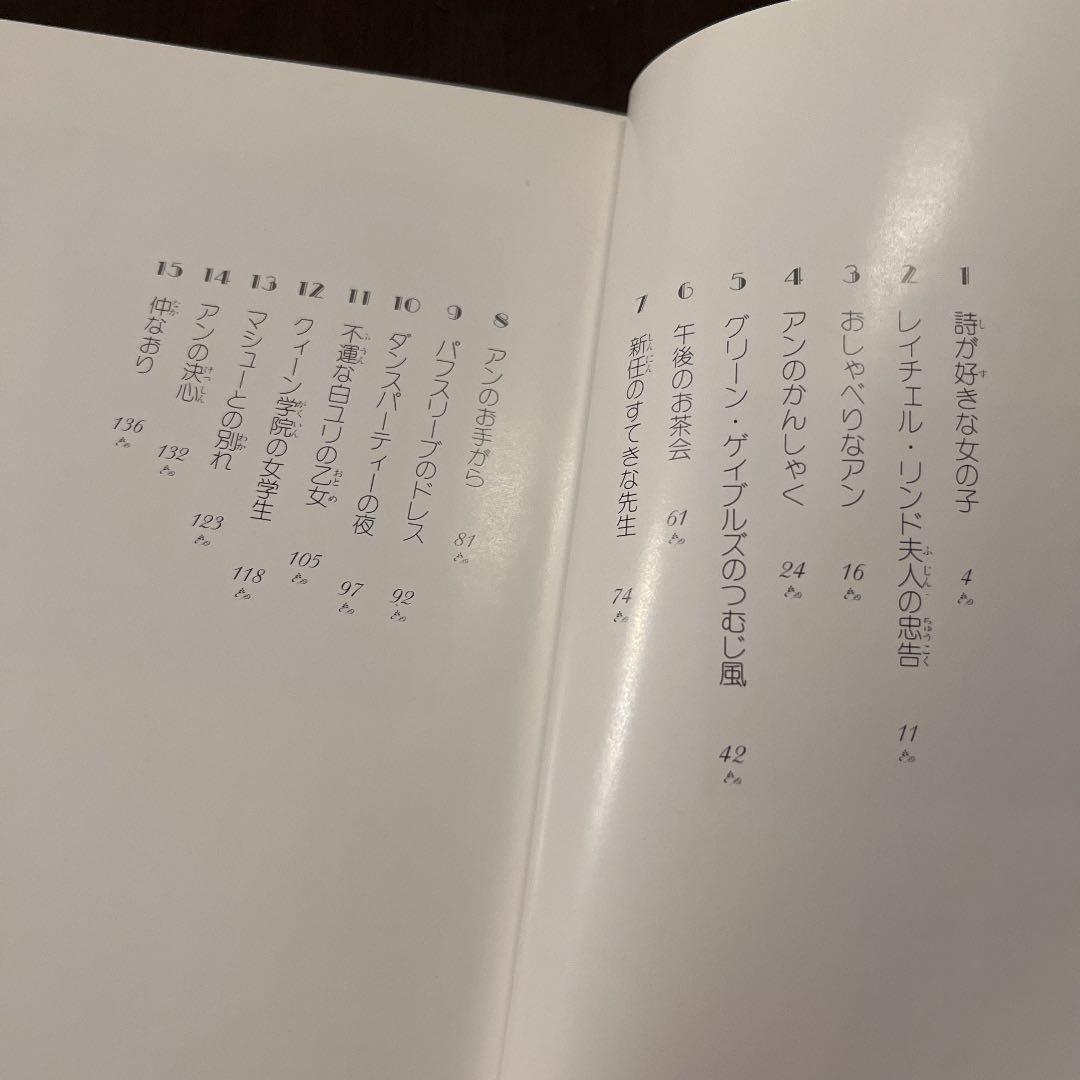 1 詩が好きな女の子 4
2 レイチェル・リンド夫人の忠告 11
3 おしゃべりなアン 16
4 アンのかんしゃく 24
5 グリーン・ゲイブルズのつむじ風 42
6 午後のお茶会 61
7 新任のすてきな先生 74
8 アンのお手がら 81
9 パフスリーブのドレス 92
10 ダンスパーティーの夜 97
11 不運な白ユリの乙女 105
12 クィーン学院の女学生 118
13 マシューとの別れ 123
14 アンの決心 132
15 仲なおり 136